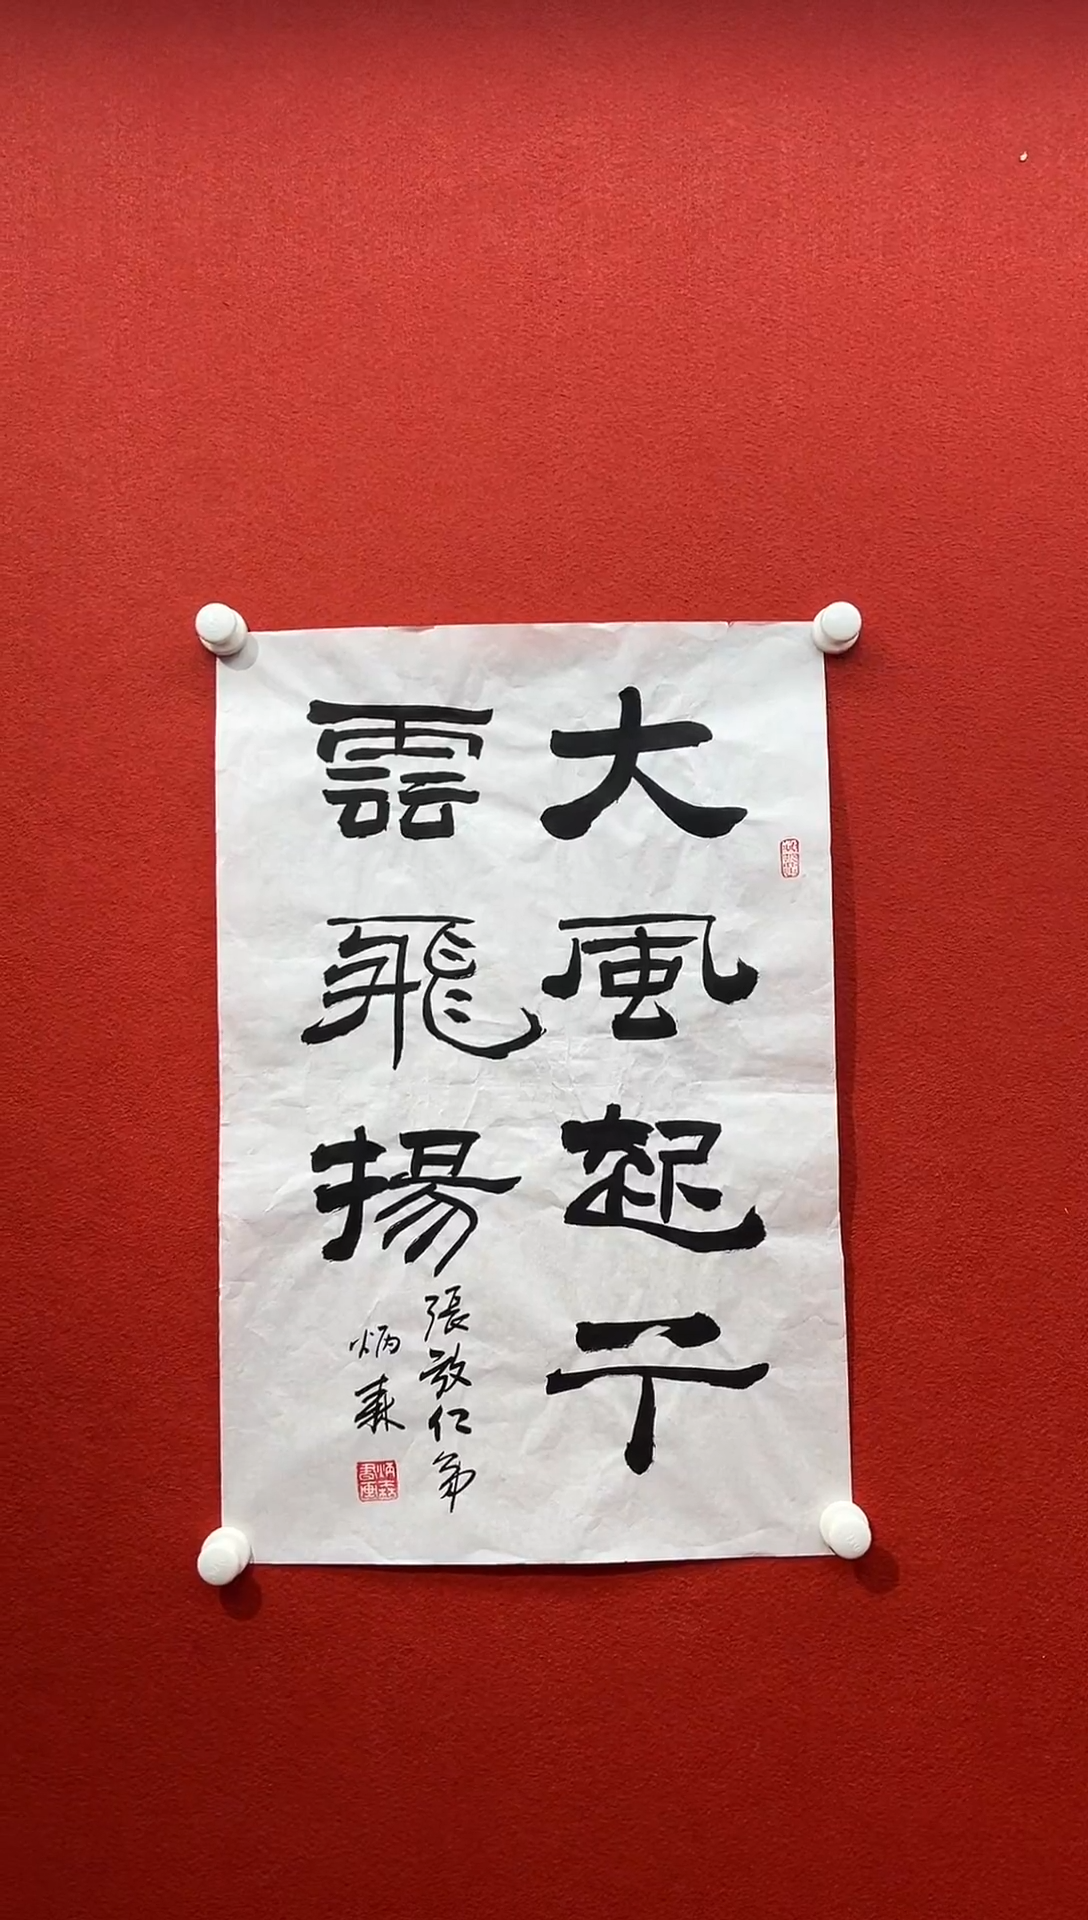 大風起兮
雲飛揚
張仁弟
炳森
炳森
書画